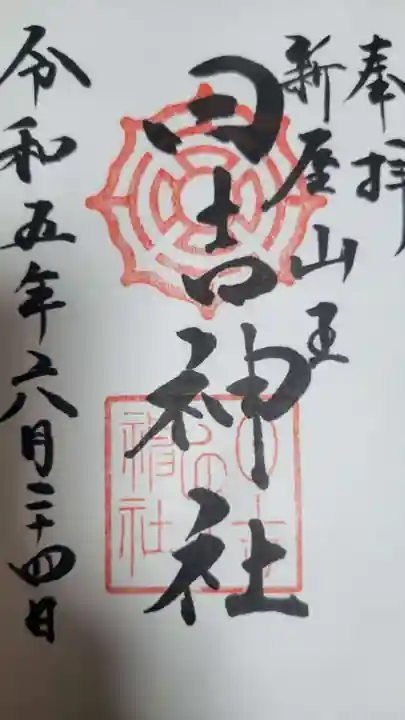 奉拝
新屋山王
日吉神社
令和五年六月二十四日
日吉神社